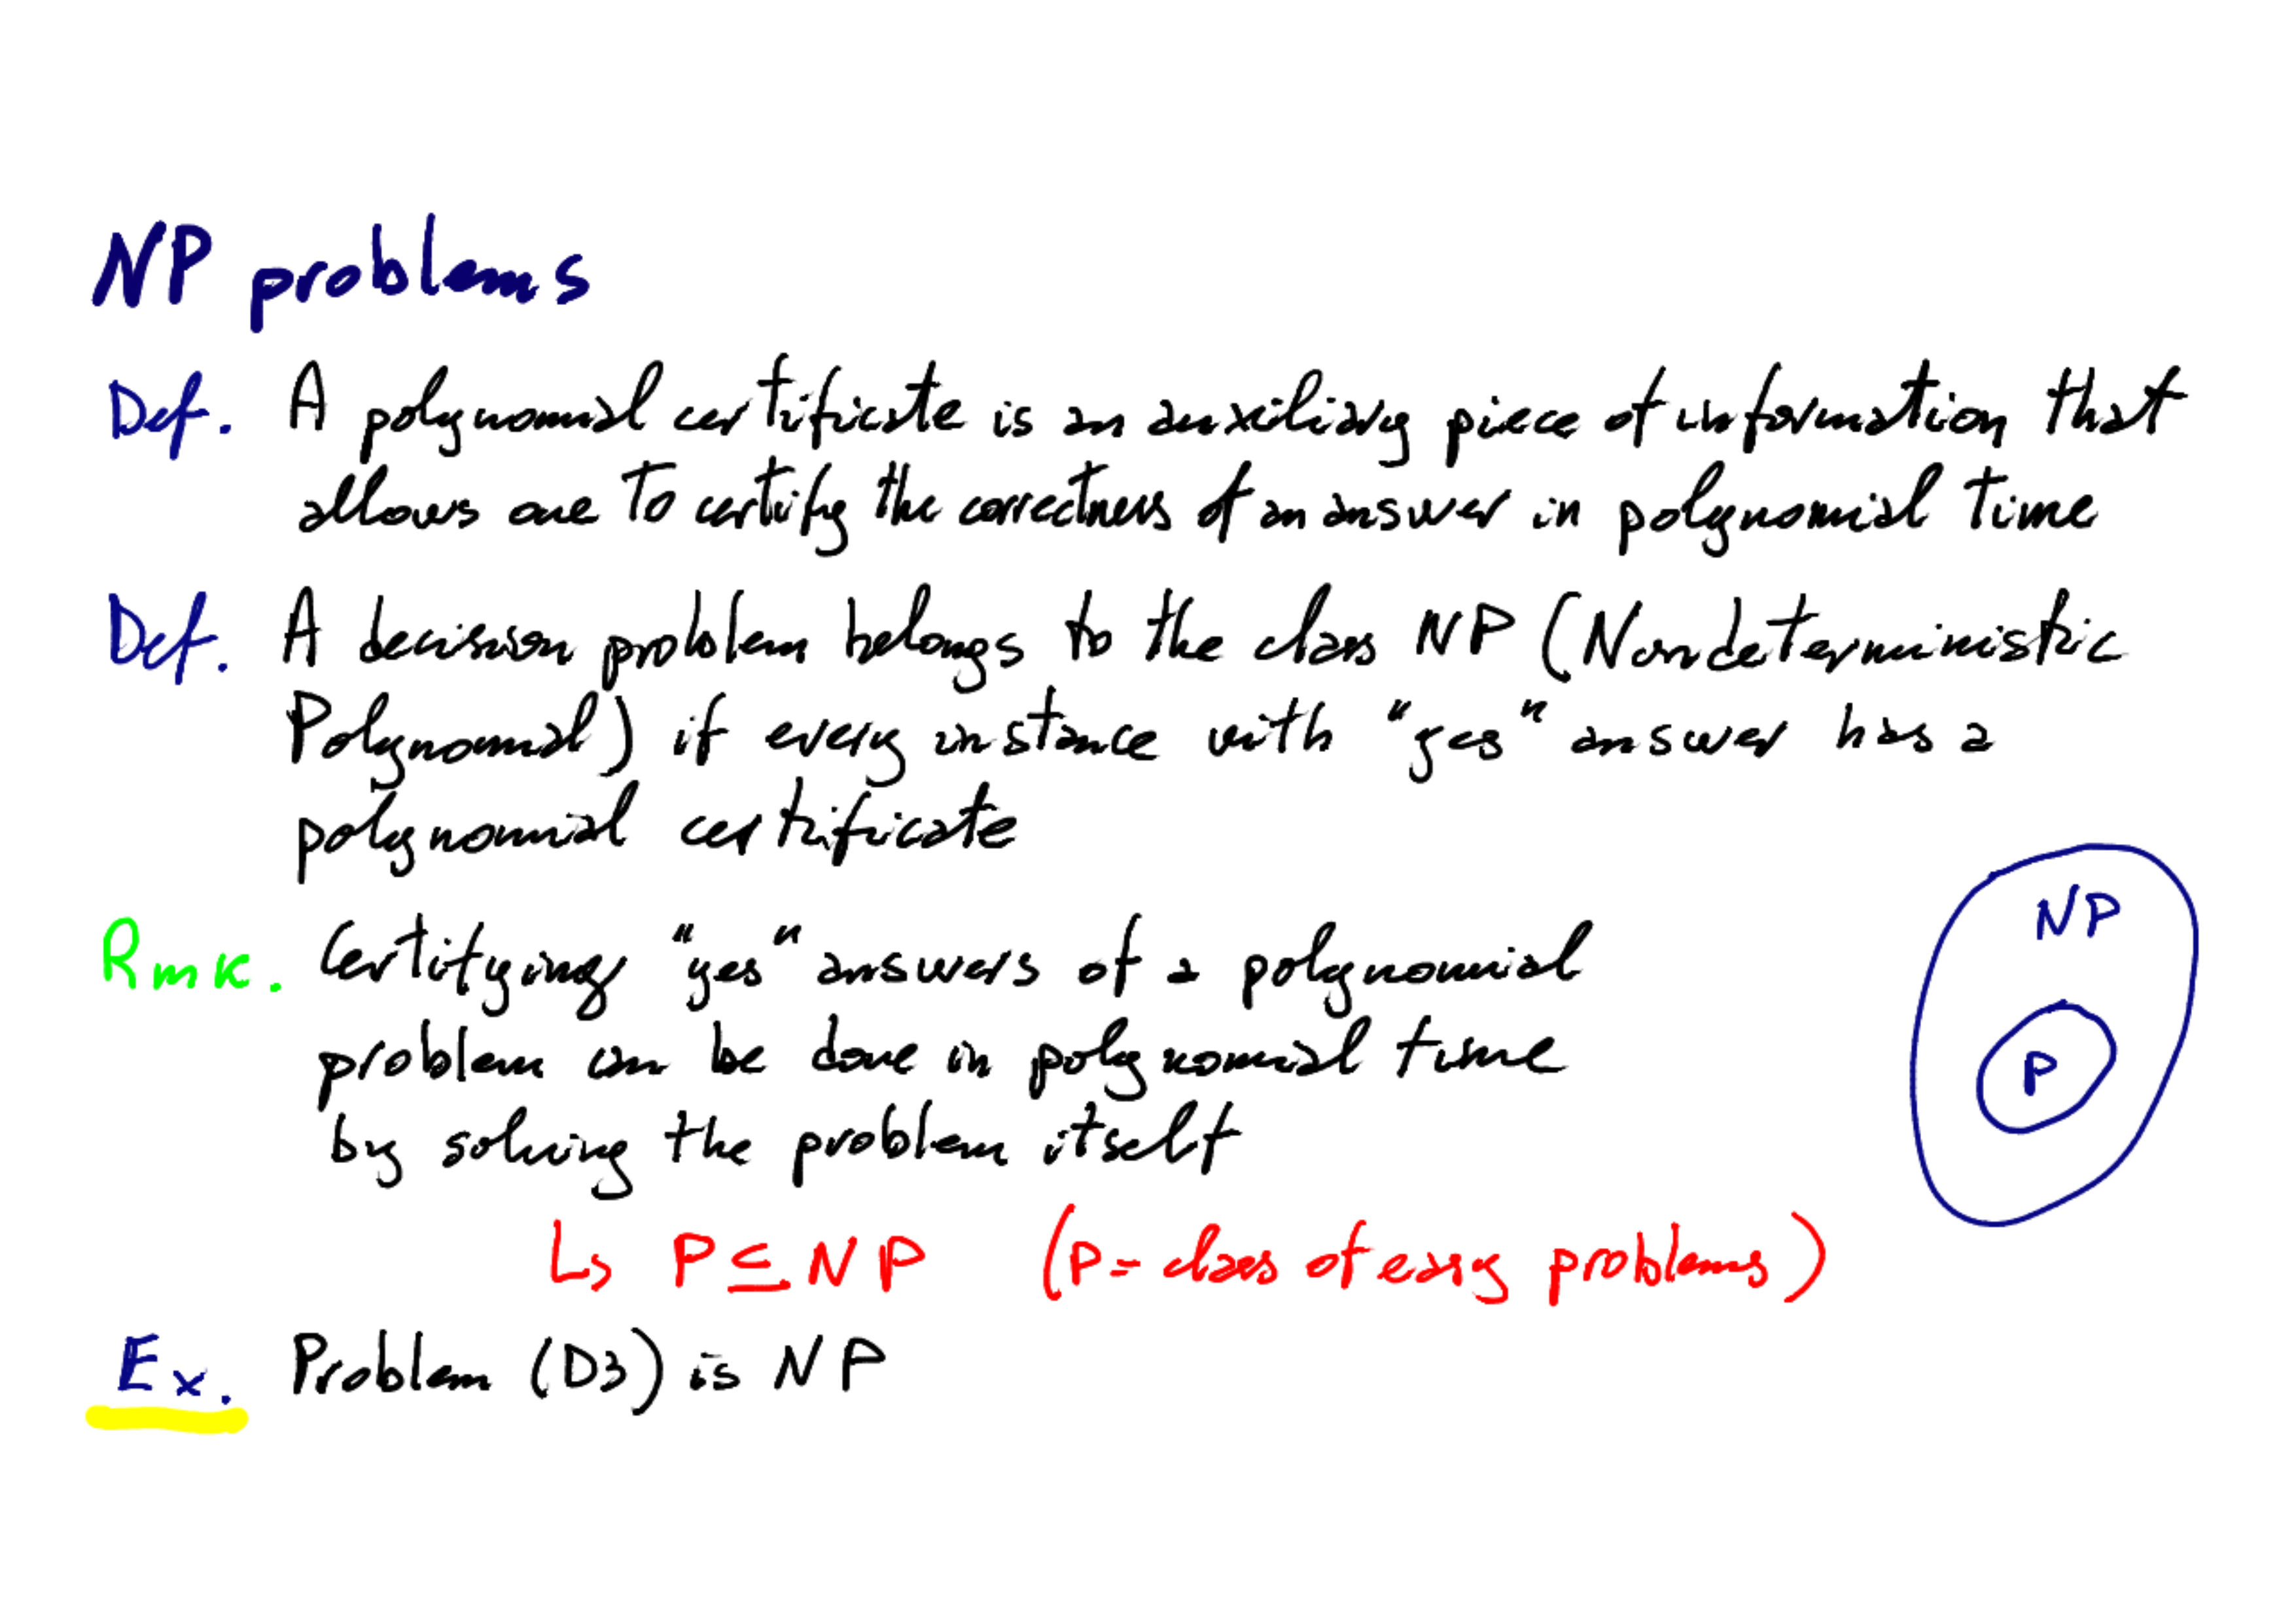 NP problems
Def. A polynomial certificate is an auxiliary piece of information that
allows one to certify the correctness of an answer in polynomial time
Def. A decision problem belongs to the class NP (Nondeterministic
Polynomial) if every instance with "yes" answer has a
polynomial certificate
Rmk. Certifying "yes" answers of a polynomial
problem can be done in polynomial time
by solving the problem itself
↳ P ⊆ NP (P = class of easy problems)
Ex. Problem (D3) is NP
NP
P